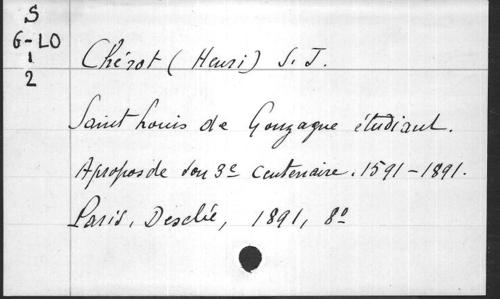 S
G-LO
1
2
Chérot (Henri) S. J.
Saint Louis de Gonzague étudiant.
A propos de son 3e centenaire. 1591-1891.
Paris, Desclée, 1891, 8º